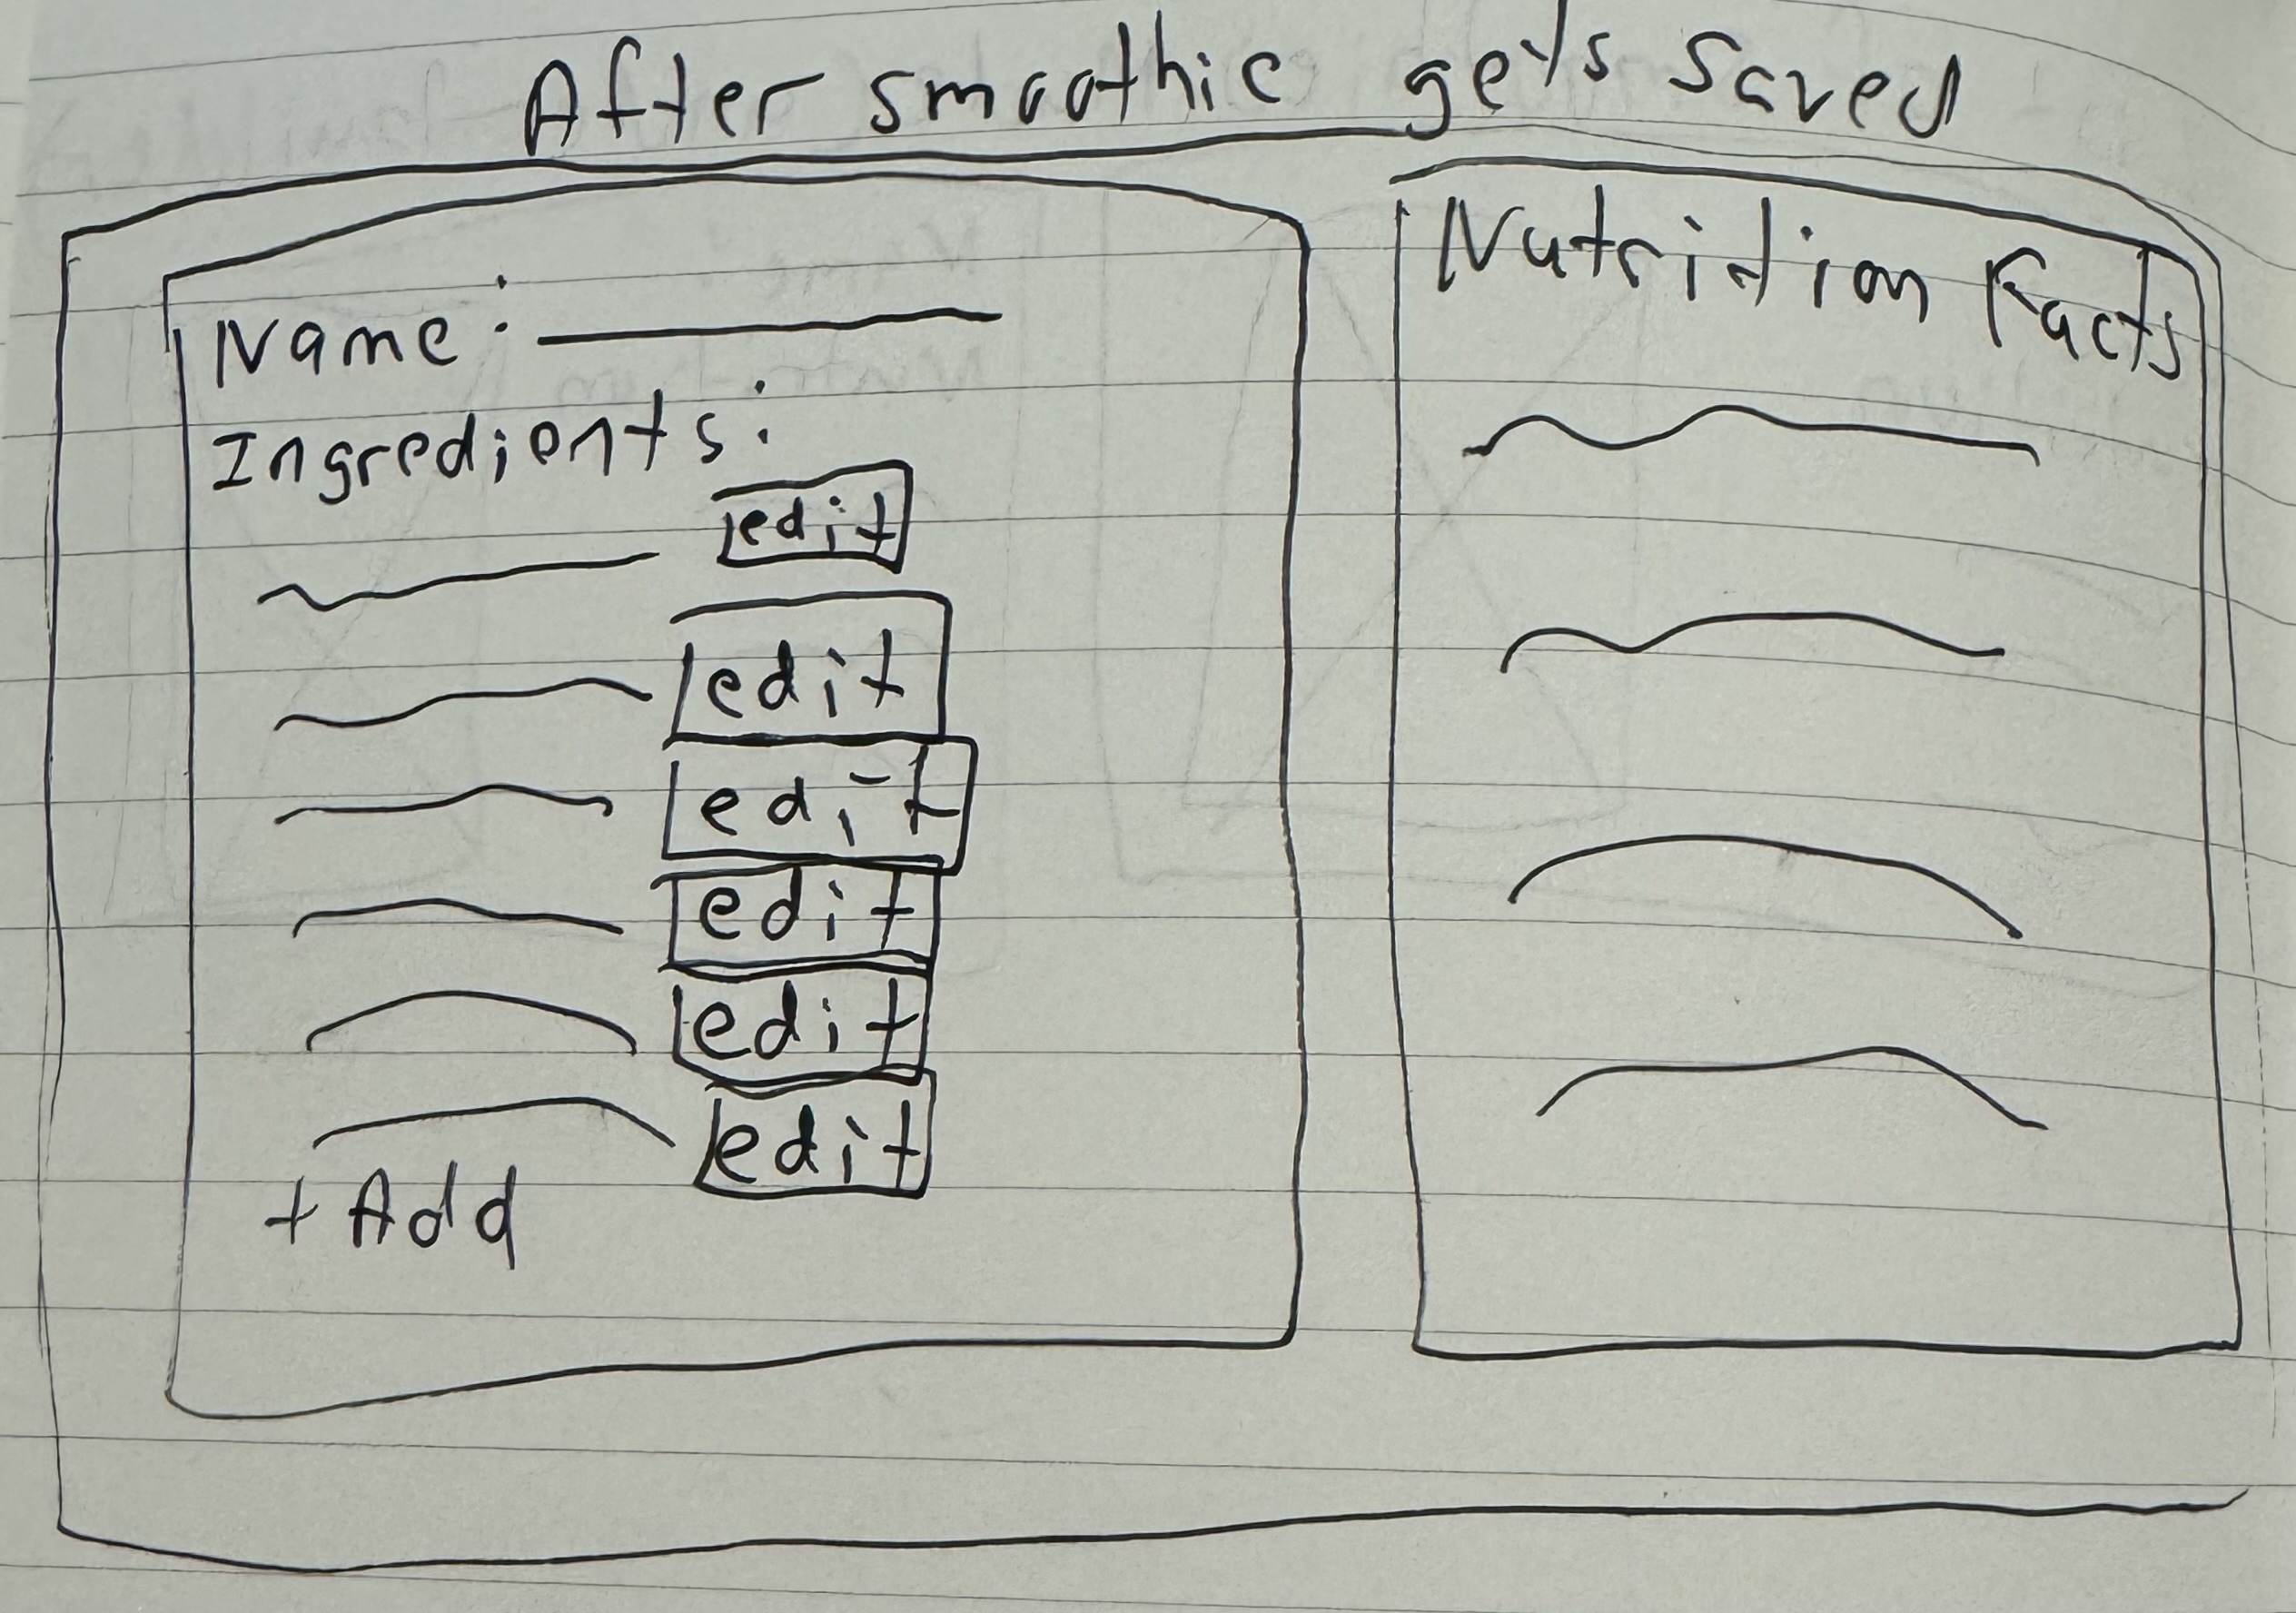 After smoothie gets saved
Name:
Ingredients:
edit
edit
edit
edit
edit
edit
+ Add
Nutrition Facts